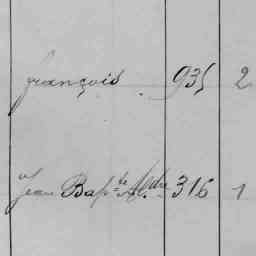 françois 935 2
Jean Bapte 316 1